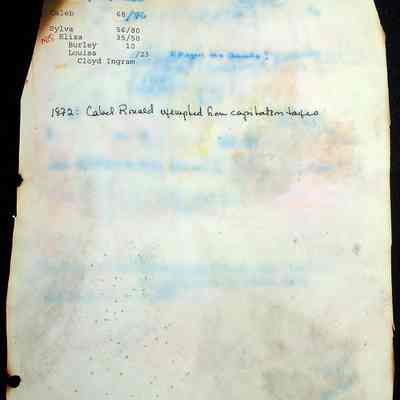 Caleb 68/86
Sylva 56/80
Eliza 35/50
Burley 10
Louisa /23
Cloyd Ingram
1872: Cabel Rineld exempted from capitation taxes